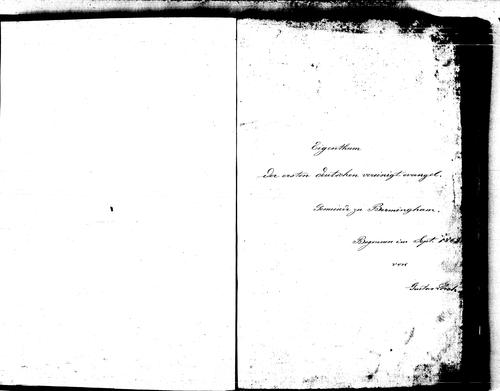 Eigenthum
der ersten deutschen vereinigt. evangel.
Gemeinde zu Birmingham.
Begonnen im Sept.
von
Gustav